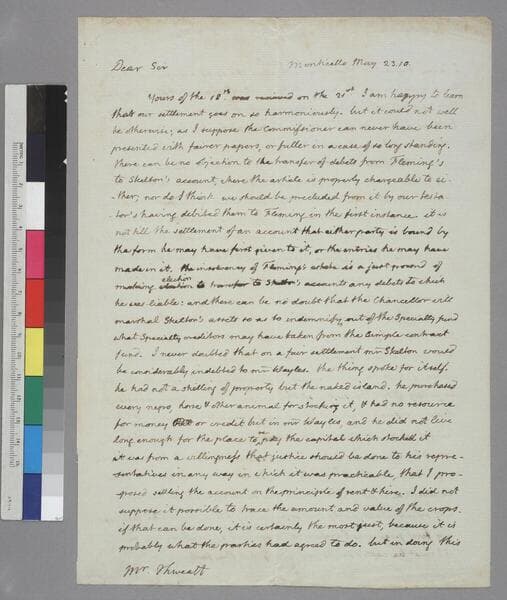 Monticello May 23. 10.
Dear Sir
Yours of the 18th was recieved on the 21st I am happy to learn
that our settlement goes on so harmoniously. but it could not well
be otherwise; as I suppose the Commissioner can never have been
presented with fairer papers, or fuller in a case of so long standing.
there can be no objection to the transfer of debets from Fleming's
to Skelton's account, where the article is properly chargeable to ei-
-ther; nor do I think we should be precluded from it by our testa-
-tor's having debited them to Fleming in the first instance. it is
not till the settlement of an account that either party is bound by
the form he may have first given to it, or the entries he may have
made in it. the insolvency of Fleming's estate is a just ground of
election
making to transfer to Skelton's accounts any debets to which
he was liable: and there can be no doubt that the Chancellor will
marshal Skelton's assets so as to indemnify, out of the Specialty fund
what Specialty creditors may have taken from the simple contract
fund. I never doubted that on a fair settlement mr Skelton would
be considerably indebted to mr Wayles. the thing spoke for itself.
he had not a shilling of property but the naked island. he purchased
every negro, horse & other animal for stocking it, & had no resource
for money or credit but in mr Wayles, and he did not live
long enough for the place to pay the capital which stocked it
it was from a willingness that justice should be done to his repre-
-sentatives in any way in which it was practicable, that I pro-
-posed settling the account on the principle of rent & hire. I did not
suppose it possible to trace the amount and value of the crops.
if that can be done, it is certainly the most just, because it is
probably what the parties had agreed to do. but in doing this
Mr. Thweatt